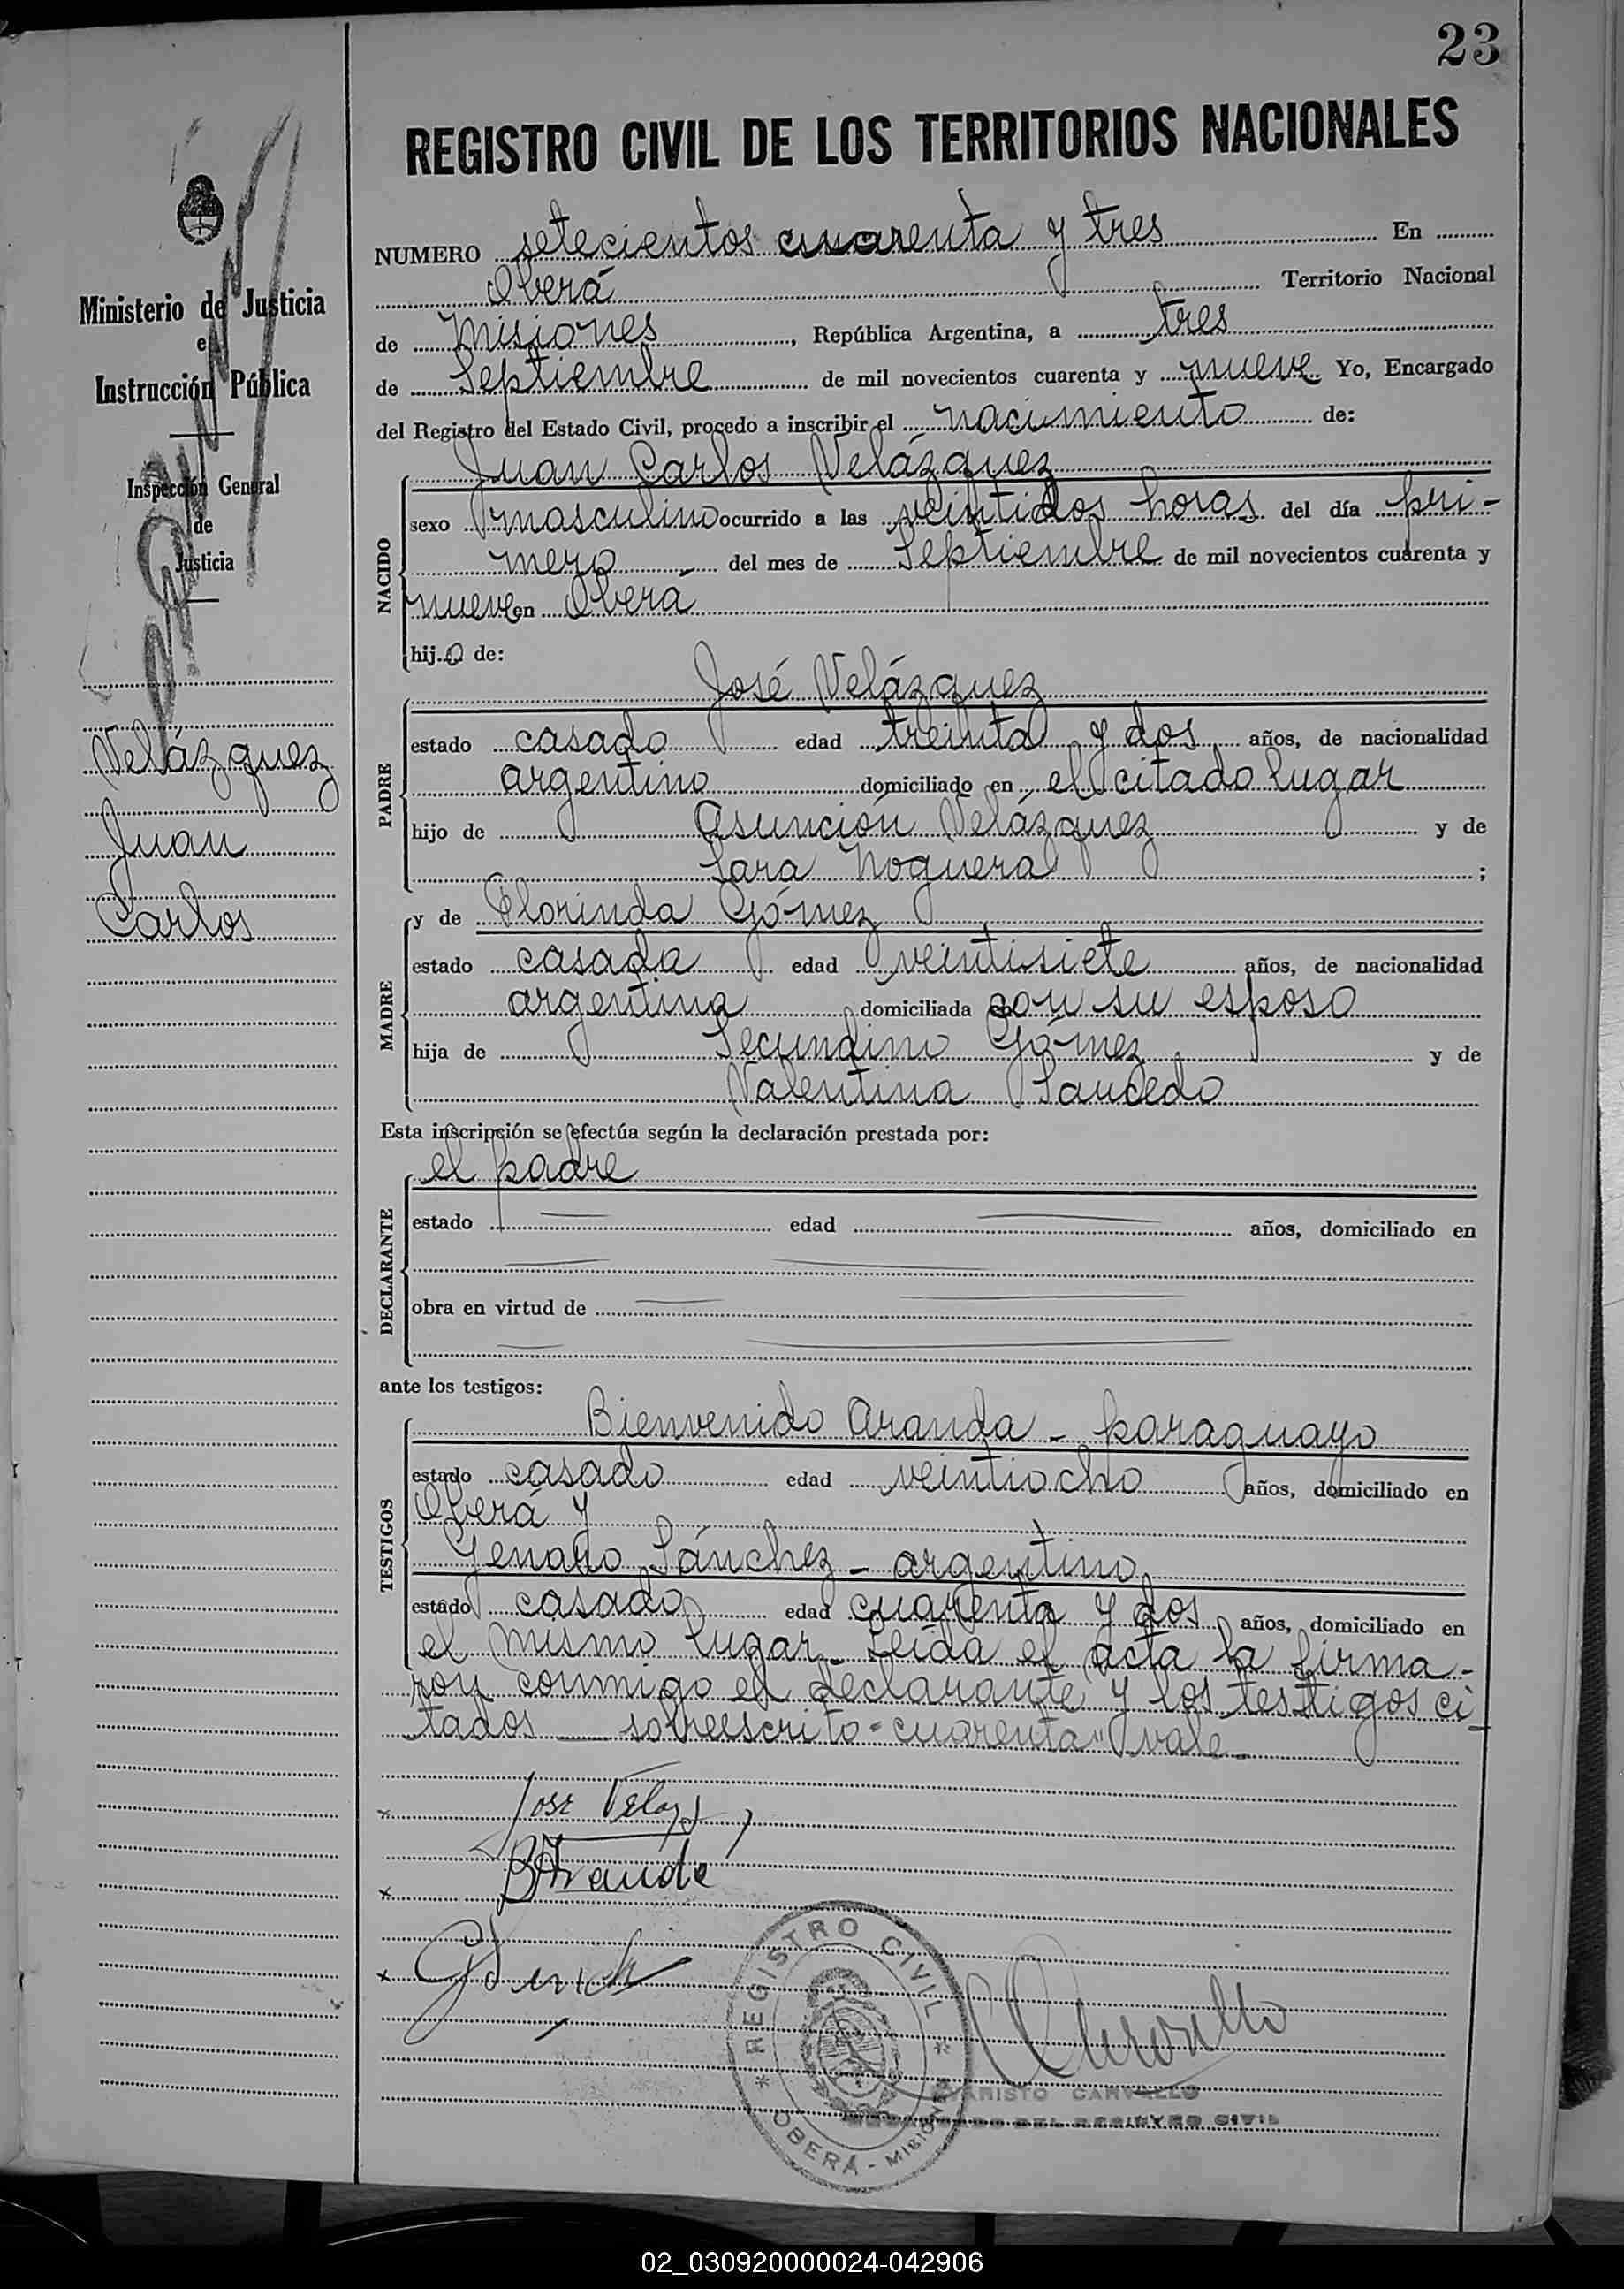 23
REGISTRO CIVIL DE LOS TERRITORIOS NACIONALES
NUMERO setecientos cuarenta y tres En
Oberá Territorio Nacional
de Misiones, República Argentina, a tres
de Septiembre de mil novecientos cuarenta y nueve Yo, Encargado
del Registro del Estado Civil, procedo a inscribir el nacimiento de:
Juan Carlos Velázquez
NACIDO
sexo masculino ocurrido a las veintidos horas del día pri-
mero del mes de Septiembre de mil novecientos cuarenta y
nueve en Oberá
hijo de:
José Velázquez
PADRE
estado casado edad treinta y dos años, de nacionalidad
argentino domiciliado en el citado lugar
hijo de Asunción Velázquez y de
Sara Noguera ;
y de Florinda Gómez
MADRE
estado casada edad veintisiete años, de nacionalidad
argentina domiciliada con su esposo
hija de Secundino Gómez y de
Valentina Saucedo
Esta inscripción se efectúa según la declaración prestada por:
el padre
DECLARANTE
estado edad años, domiciliado en
obra en virtud de
ante los testigos:
Bienvenido Aranda - paraguayo
TESTIGOS
estado casado edad veintiocho años, domiciliado en
Oberá y
Genaro Sánchez - argentino
estado casado edad cuarenta y dos años, domiciliado en
el mismo lugar. Leída el acta la firma-
ron conmigo el declarante y los testigos ci-
tados — sobreescrito "cuarenta" vale -
Ministerio de Justicia
e
Instrucción Pública
Inspección General
de
Justicia
Velázquez
Juan
Carlos
Jose
BAranda
REGISTRO CIVIL
* OBERÁ - MISIONES *
CARVALLO
DEL REGISTRO CIVIL
02_030920000024-042906